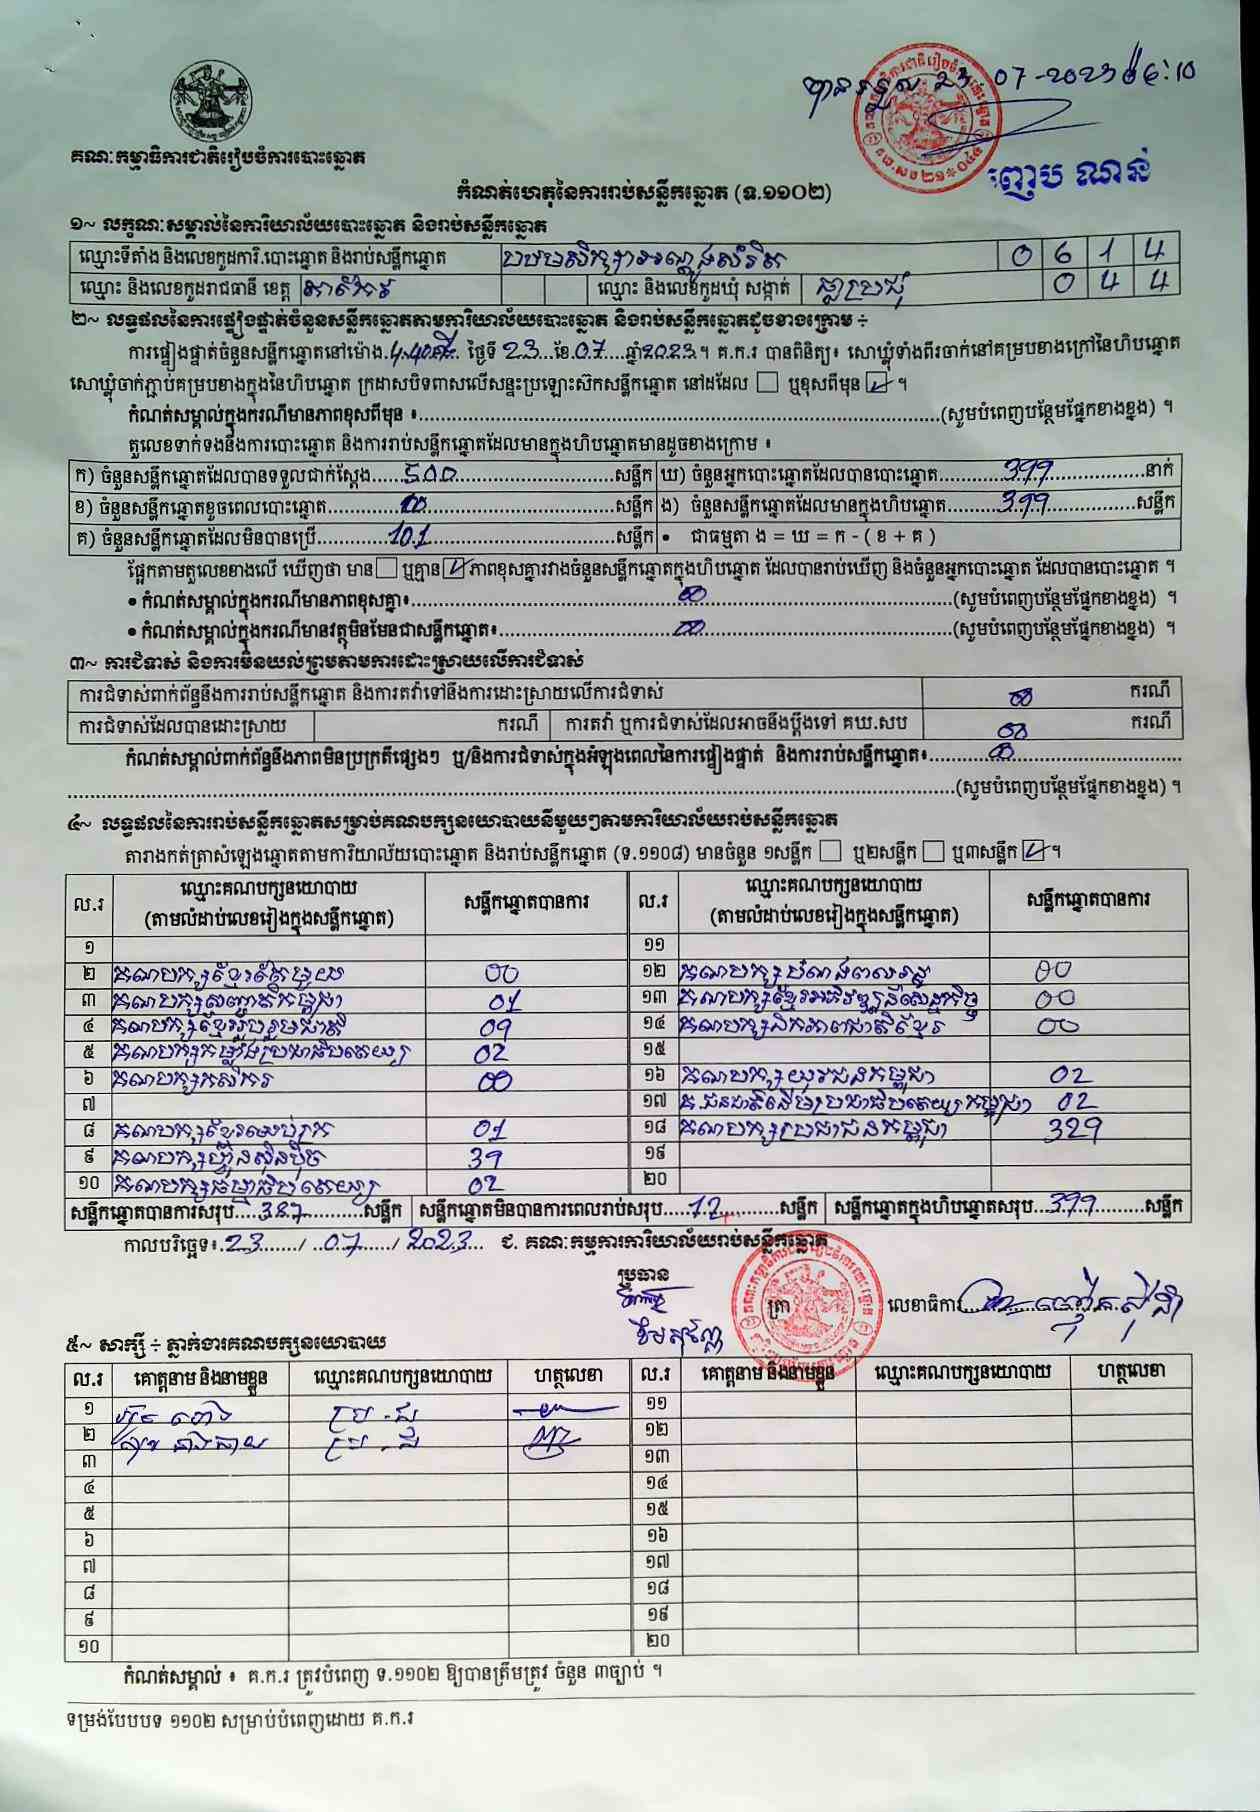 បានទទួល 23-07-2023
គណៈកម្មាធិការជាតិរៀបចំការបោះឆ្នោត
ញេប ណាន់
កំណត់ហេតុនៃការរាប់សន្លឹកឆ្នោត (ទ.១១០២)
១~ លក្ខណៈសម្គាល់នៃការិយាល័យបោះឆ្នោត និងរាប់សន្លឹកឆ្នោត
ឈ្មោះទីតាំង និងលេខកូដការិ.បោះឆ្នោត និងរាប់សន្លឹកឆ្នោត 0 6 1 4
ឈ្មោះ និងលេខកូដរាជធានី ខេត្ត ឈ្មោះ និងលេខកូដឃុំ សង្កាត់ 0 4 4
២~ លទ្ធផលនៃការផ្ទៀងផ្ទាត់ចំនួនសន្លឹកឆ្នោតតាមការិយាល័យបោះឆ្នោត និងរាប់សន្លឹកឆ្នោតដូចខាងក្រោម ÷
ការផ្ទៀងផ្ទាត់ចំនួនសន្លឹកឆ្នោតនៅម៉ោង ថ្ងៃទី 23 ខែ 07 ឆ្នាំ 2023 ។ គ.ក.រ បានពិនិត្យ៖ សោឃ្លុំទាំងពីរចាក់នៅគម្របខាងក្រៅនៃហិបឆ្នោត
សោឃ្លុំចាក់ភ្ជាប់គម្របខាងក្នុងនៃហិបឆ្នោត ក្រដាសបិទពាសលើសន្ទះប្រឡោះស៊កសន្លឹកឆ្នោត នៅដដែល ☐ ឬខុសពីមុន ☑ ។
កំណត់សម្គាល់ក្នុងករណីមានភាពខុសពីមុន ៖ (សូមបំពេញបន្ថែមផ្នែកខាងខ្នង) ។
តួលេខទាក់ទងនឹងការបោះឆ្នោត និងការរាប់សន្លឹកឆ្នោតដែលមានក្នុងហិបឆ្នោតមានដូចខាងក្រោម ៖
ក) ចំនួនសន្លឹកឆ្នោតដែលបានទទួលជាក់ស្តែង 500 សន្លឹក ឃ) ចំនួនអ្នកបោះឆ្នោតដែលបានបោះឆ្នោត 399 នាក់
ខ) ចំនួនសន្លឹកឆ្នោតខូចពេលបោះឆ្នោត 00 សន្លឹក ង) ចំនួនសន្លឹកឆ្នោតដែលមានក្នុងហិបឆ្នោត 399 សន្លឹក
គ) ចំនួនសន្លឹកឆ្នោតដែលមិនបានប្រើ 101 សន្លឹក • ជាធម្មតា ង = ឃ = ក - ( ខ + គ )
ផ្អែកតាមតួលេខខាងលើ ឃើញថា មាន ☐ ឬគ្មាន ☑ ភាពខុសគ្នារវាងចំនួនសន្លឹកឆ្នោតក្នុងហិបឆ្នោត ដែលបានរាប់ឃើញ និងចំនួនអ្នកបោះឆ្នោត ដែលបានបោះឆ្នោត ។
• កំណត់សម្គាល់ក្នុងករណីមានភាពខុសគ្នា៖ 00 (សូមបំពេញបន្ថែមផ្នែកខាងខ្នង) ។
• កំណត់សម្គាល់ក្នុងករណីមានវត្ថុមិនមែនជាសន្លឹកឆ្នោត៖ 00 (សូមបំពេញបន្ថែមផ្នែកខាងខ្នង) ។
៣~ ការជំទាស់ និងការមិនយល់ព្រមតាមការដោះស្រាយលើការជំទាស់
ការជំទាស់ពាក់ព័ន្ធនឹងការរាប់សន្លឹកឆ្នោត និងការតវ៉ាទៅនឹងការដោះស្រាយលើការជំទាស់ 00 ករណី
ការជំទាស់ដែលបានដោះស្រាយ ករណី ការតវ៉ា ឬការជំទាស់ដែលអាចនឹងប្តឹងទៅ គឃ.សប 00 ករណី
កំណត់សម្គាល់ពាក់ព័ន្ធនឹងភាពមិនប្រក្រតីផ្សេងៗ ឬ/និងការជំទាស់ក្នុងអំឡុងពេលនៃការផ្ទៀងផ្ទាត់ និងការរាប់សន្លឹកឆ្នោត៖ 00
(សូមបំពេញបន្ថែមផ្នែកខាងខ្នង) ។
៤~ លទ្ធផលនៃការរាប់សន្លឹកឆ្នោតសម្រាប់គណបក្សនយោបាយនីមួយៗតាមការិយាល័យរាប់សន្លឹកឆ្នោត
តារាងកត់ត្រាសំឡេងឆ្នោតតាមការិយាល័យបោះឆ្នោត និងរាប់សន្លឹកឆ្នោត (ទ.១១០៨) មានចំនួន ១សន្លឹក ☐ ឬ២សន្លឹក ☐ ឬ៣សន្លឹក ☑ ។
ល.រ ឈ្មោះគណបក្សនយោបាយ (តាមលំដាប់លេខរៀងក្នុងសន្លឹកឆ្នោត) សន្លឹកឆ្នោតបានការ ល.រ ឈ្មោះគណបក្សនយោបាយ (តាមលំដាប់លេខរៀងក្នុងសន្លឹកឆ្នោត) សន្លឹកឆ្នោតបានការ
១ ១១
២ គណបក្សខ្មែរតែមួយ 00 ១២ គណបក្សបំណងពលរដ្ឋ 00
៣ គណបក្សសញ្ជាតិកម្ពុជា 01 ១៣ គណបក្សខ្មែរអភិវឌ្ឍន៍សេដ្ឋកិច្ច 00
៤ គណបក្សខ្មែររួបរួមជាតិ 09 ១៤ គណបក្សឯកភាពជាតិខ្មែរ 00
៥ គណបក្សកម្លាំងប្រជាធិបតេយ្យ 02 ១៥
៦ គណបក្សកសិករ 00 ១៦ គណបក្សយុវជនកម្ពុជា 02
៧ ១៧ គ.ជនជាតិដើមប្រជាធិបតេយ្យកម្ពុជា 02
៨ គណបក្សខ្មែរឈប់ក្រ 01 ១៨ គណបក្សប្រជាជនកម្ពុជា 329
៩ គណបក្សហ៊្វុនស៊ិនប៉ិច 39 ១៩
១០ គណបក្សធម្មាធិបតេយ្យ 02 ២០
សន្លឹកឆ្នោតបានការសរុប 387 សន្លឹក សន្លឹកឆ្នោតមិនបានការពេលរាប់សរុប 12 សន្លឹក សន្លឹកឆ្នោតក្នុងហិបឆ្នោតសរុប 399 សន្លឹក
កាលបរិច្ឆេទ៖ 23 / 07 / 2023 ជ. គណៈកម្មការការិយាល័យរាប់សន្លឹកឆ្នោត
ប្រធាន
ត្រា លេខាធិការ
៥~ សាក្សី ÷ ភ្នាក់ងារគណបក្សនយោបាយ
ល.រ គោត្តនាម និងនាមខ្លួន ឈ្មោះគណបក្សនយោបាយ ហត្ថលេខា ល.រ គោត្តនាម និងនាមខ្លួន ឈ្មោះគណបក្សនយោបាយ ហត្ថលេខា
១ ប្រ.ជ ១១
២ ប្រ.ជ ១២
៣ ១៣
៤ ១៤
៥ ១៥
៦ ១៦
៧ ១៧
៨ ១៨
៩ ១៩
១០ ២០
កំណត់សម្គាល់ ៖ គ.ក.រ ត្រូវបំពេញ ទ.១១០២ ឱ្យបានត្រឹមត្រូវ ចំនួន ៣ច្បាប់ ។
ទម្រង់បែបបទ ១១០២ សម្រាប់បំពេញដោយ គ.ក.រ